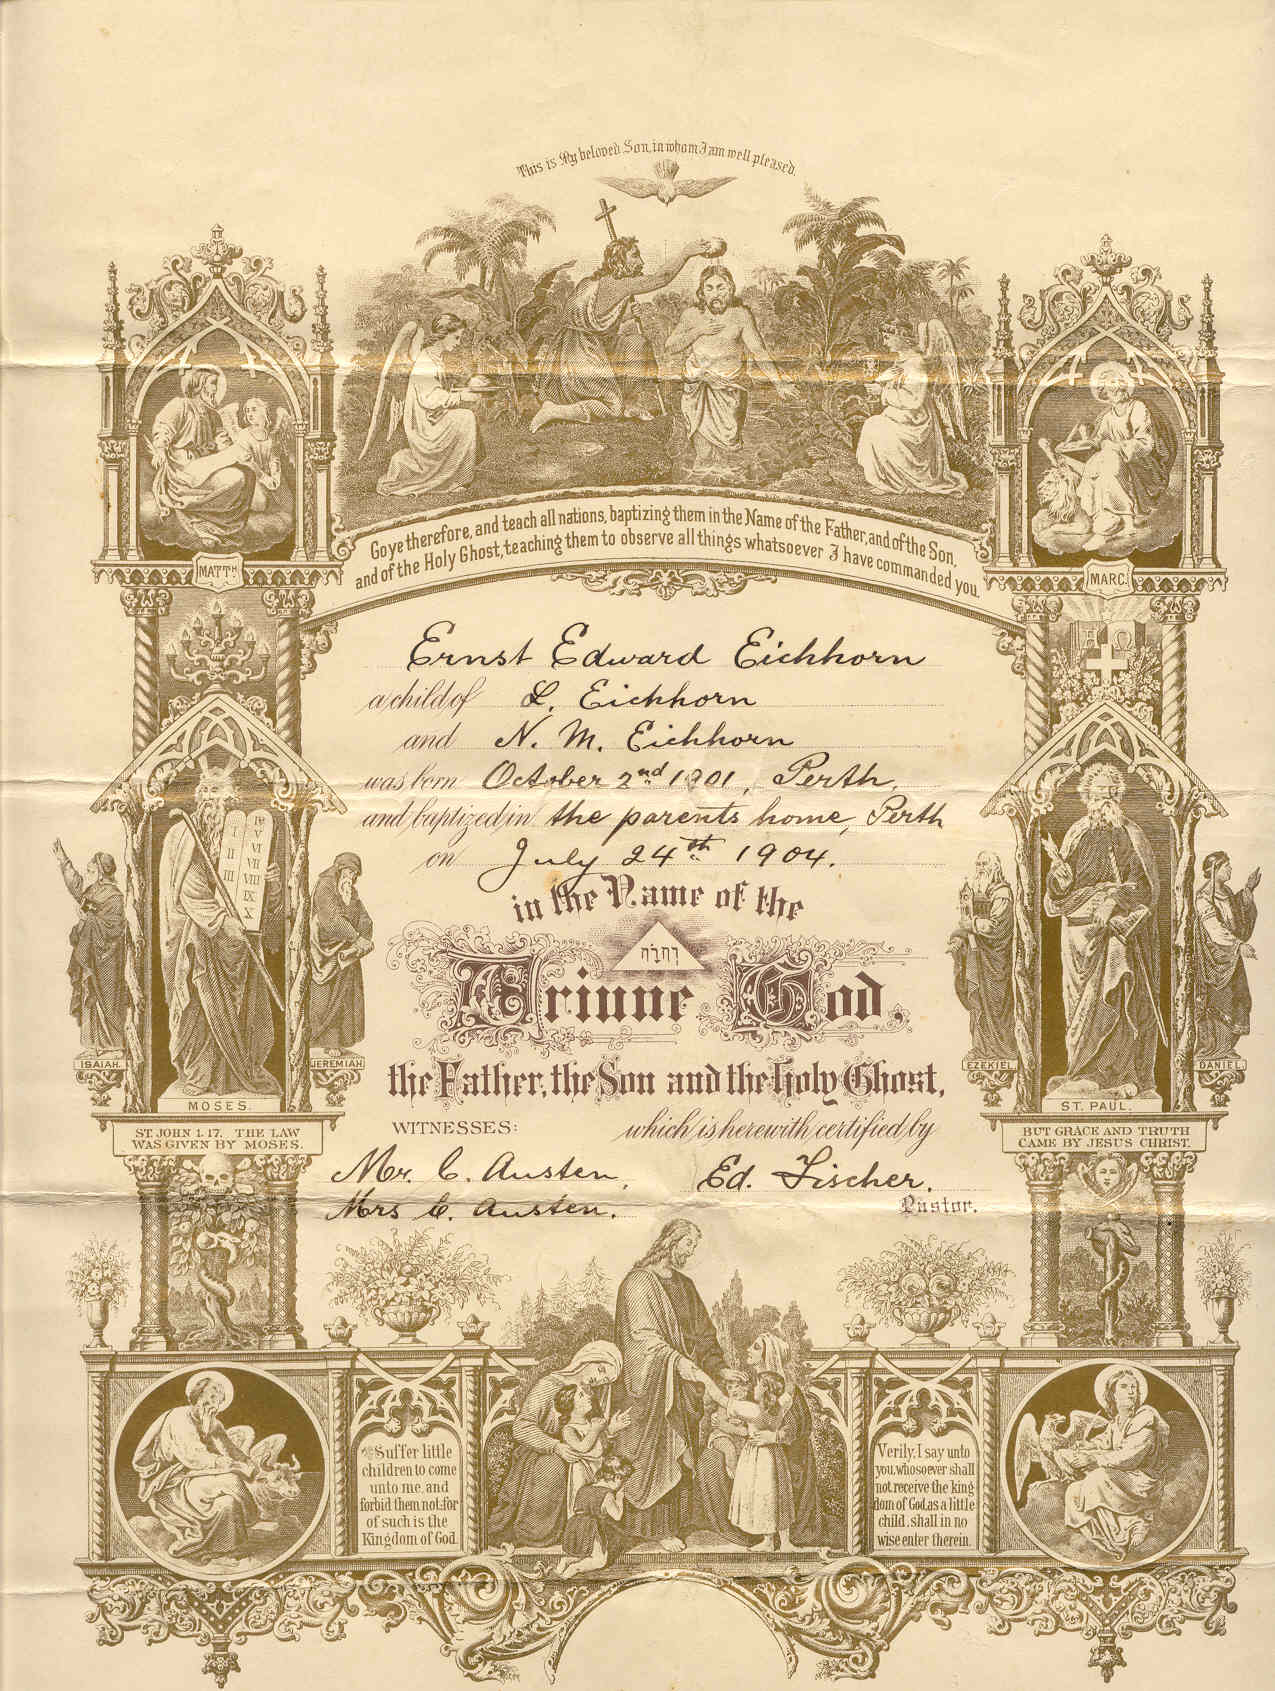 This is My beloved Son, in whom I am well pleased.
Go ye therefore, and teach all nations, baptizing them in the Name of the Father, and of the Son,
and of the Holy Ghost, teaching them to observe all things whatsoever I have commanded you.
MATTH
MARC.
Α Ω
Ernst Edward Eichhorn
a child of L. Eichhorn
and N. M. Eichhorn
was born October 2nd 1901, Perth,
and baptized in the parents home, Perth
on July 24th 1904.
in the Name of the
יהוה
Triune God,
the Father, the Son and the Holy Ghost,
I
II
III
IV
V
VI
VII
VIII
IX
X
ISAIAH.
JEREMIAH
EZEKIEL.
DANIEL.
MOSES.
ST. PAUL.
ST. JOHN 1.17. THE LAW
WAS GIVEN BY MOSES.
BUT GRACE AND TRUTH
CAME BY JESUS CHRIST.
WITNESSES:
which is herewith certified by
Mr. C. Austen,
Mrs C. Austen.
Ed. Fischer,
Pastor.
Suffer little
children to come
unto me, and
forbid them not: for
of such is the
Kingdom of God.
Verily, I say unto
you, whosoever shall
not receive the king
dom of God, as a little
child, shall in no
wise enter therein.